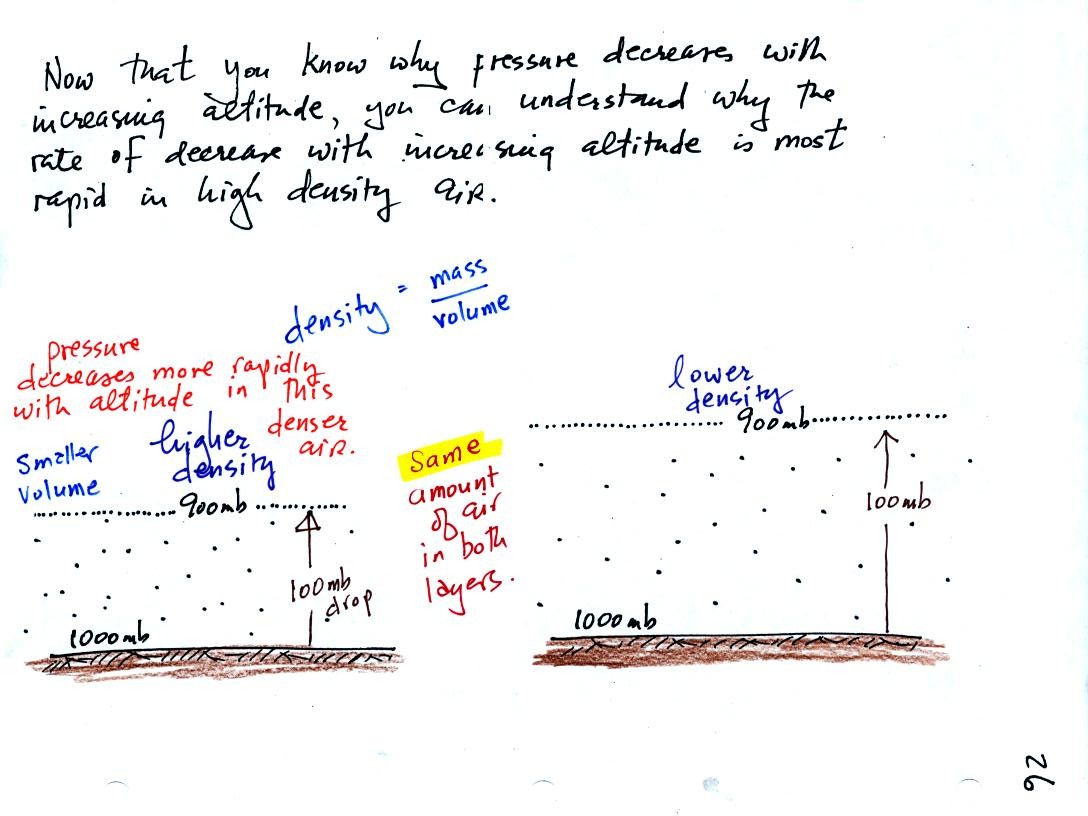 Now that you know why pressure decreases with
increasing altitude, you can understand why the
rate of decrease with increasing altitude is most
rapid in high density air.
density = mass
volume
pressure
decreases more rapidly
with altitude in this
denser
air.
higher
density
Smaller
volume
900mb
100mb
drop
1000mb
Same
amount
of air
in both
layers.
lower
density
900mb
100mb
1000mb
92